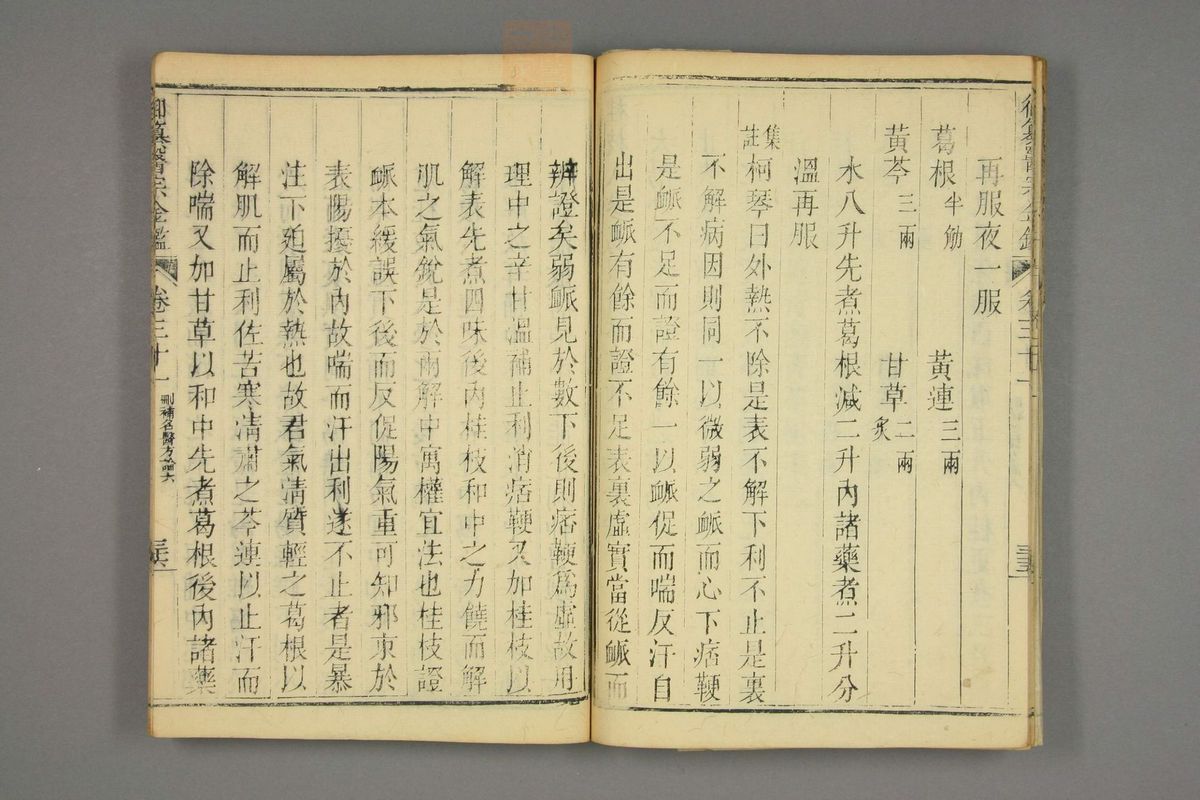 再服夜一服
葛根半觔　黃連三兩
黃芩三兩　甘草炙二兩
水八升先煮葛根減二升內諸藥煮二升分
溫再服
集註柯琴曰外熱不除是表不解下利不止是裏
不解病因則同一以微弱之脈而心下痞鞕
是脈不足而證有餘一以脈促而喘反汗自
出是脈有餘而證不足表裏虛實當從脈而
辨證矣弱脈見於數下後則痞鞕爲虛故用
理中之辛甘溫補止利消痞鞕又加桂枝以
解表先煮四味後內桂枝和中之力饒而解
肌之氣銳是於兩解中寓權宜法也桂枝證
脈本緩誤下後而反促陽氣重可知邪束於
表陽擾於內故喘而汗出利遂不止者是暴
注下廹屬於熱也故君氣淸質輕之葛根以
解肌而止利佐苦寒淸肅之芩連以止汗而
除喘又加甘草以和中先煮葛根後內諸藥
御纂醫宗金鑑　卷三十一　刪補名醫方論六